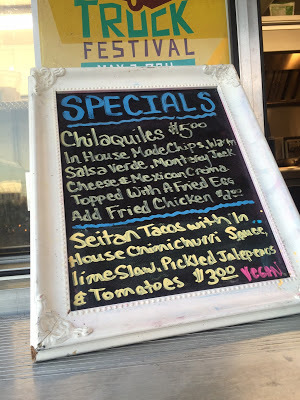 TRUCK
FESTIVAL
SPECIALS
Chilaquiles $5.00
In House Made Chips, With
Salsa Verde, Monterey Jack
Cheese & Mexican Crema
Topped With A Fried Egg
Add Fried Chicken $2.00
Seitan Tacos with In
House Chimichurri Sauce,
lime Slaw, Pickled Jalepenos
& Tomatoes $3.00 Vegan!